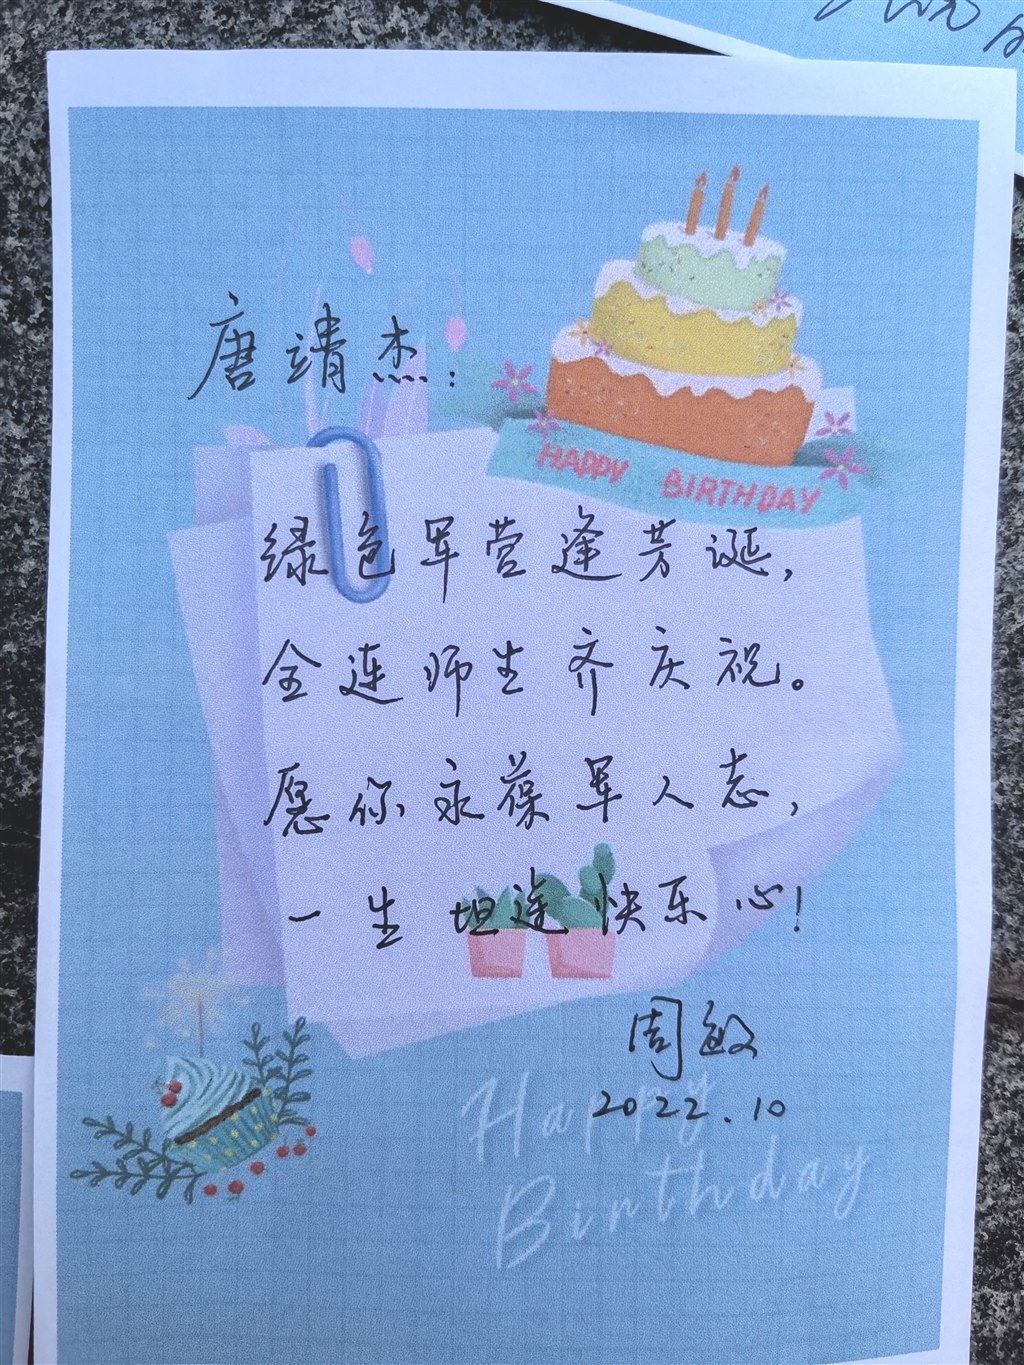 唐靖杰：
HAPPY BIRTHDAY
绿色军营逢芳诞，
全连师生齐庆祝。
愿你永葆军人志，
一生坦途快乐心！
周敏
2022.10
Happy
Birthday